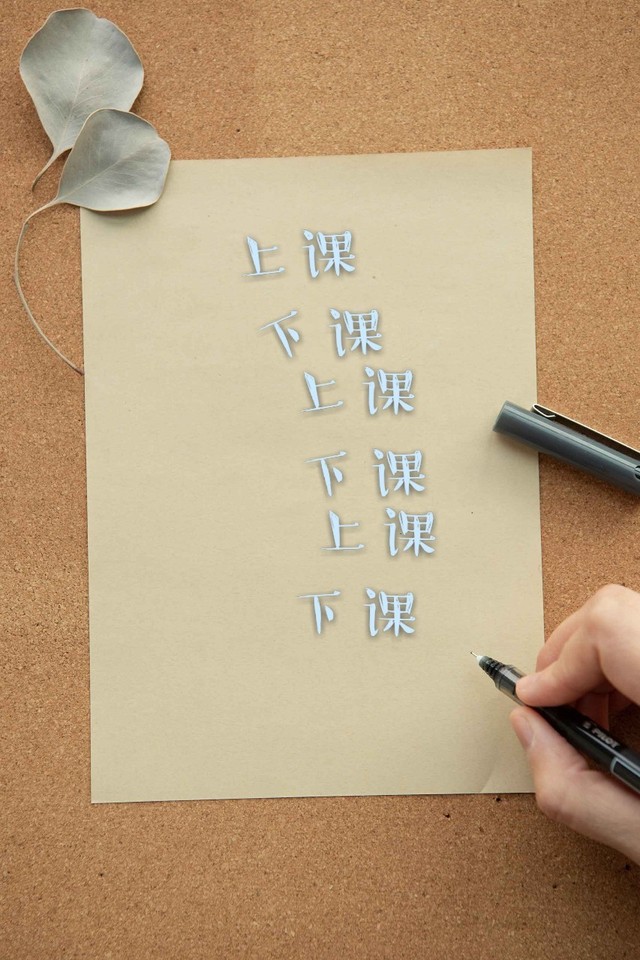 上课
下课
上课
下课
上课
下课
PILOT